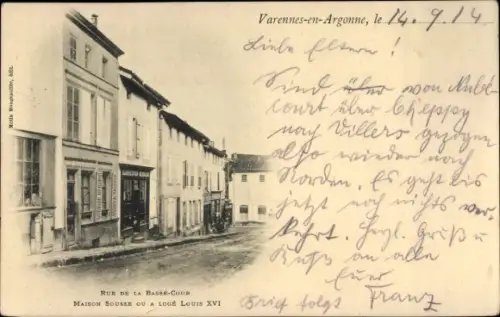 Varennes-en-Argonne, le 14. 9. 14
Liebe Eltern!
Sind über von Aubé-
court über Cheppy
nach Villers gezogen
also wieder nach
Norden. Es geht bis
jetzt noch nichts ver-
kehrt. Herzl. Gruß u
Kuß an alle
Euer
Brief folgt Franz
RUE DE LA BASSE-COUR
MAISON SOUSSE OU A LOGÉ LOUIS XVI